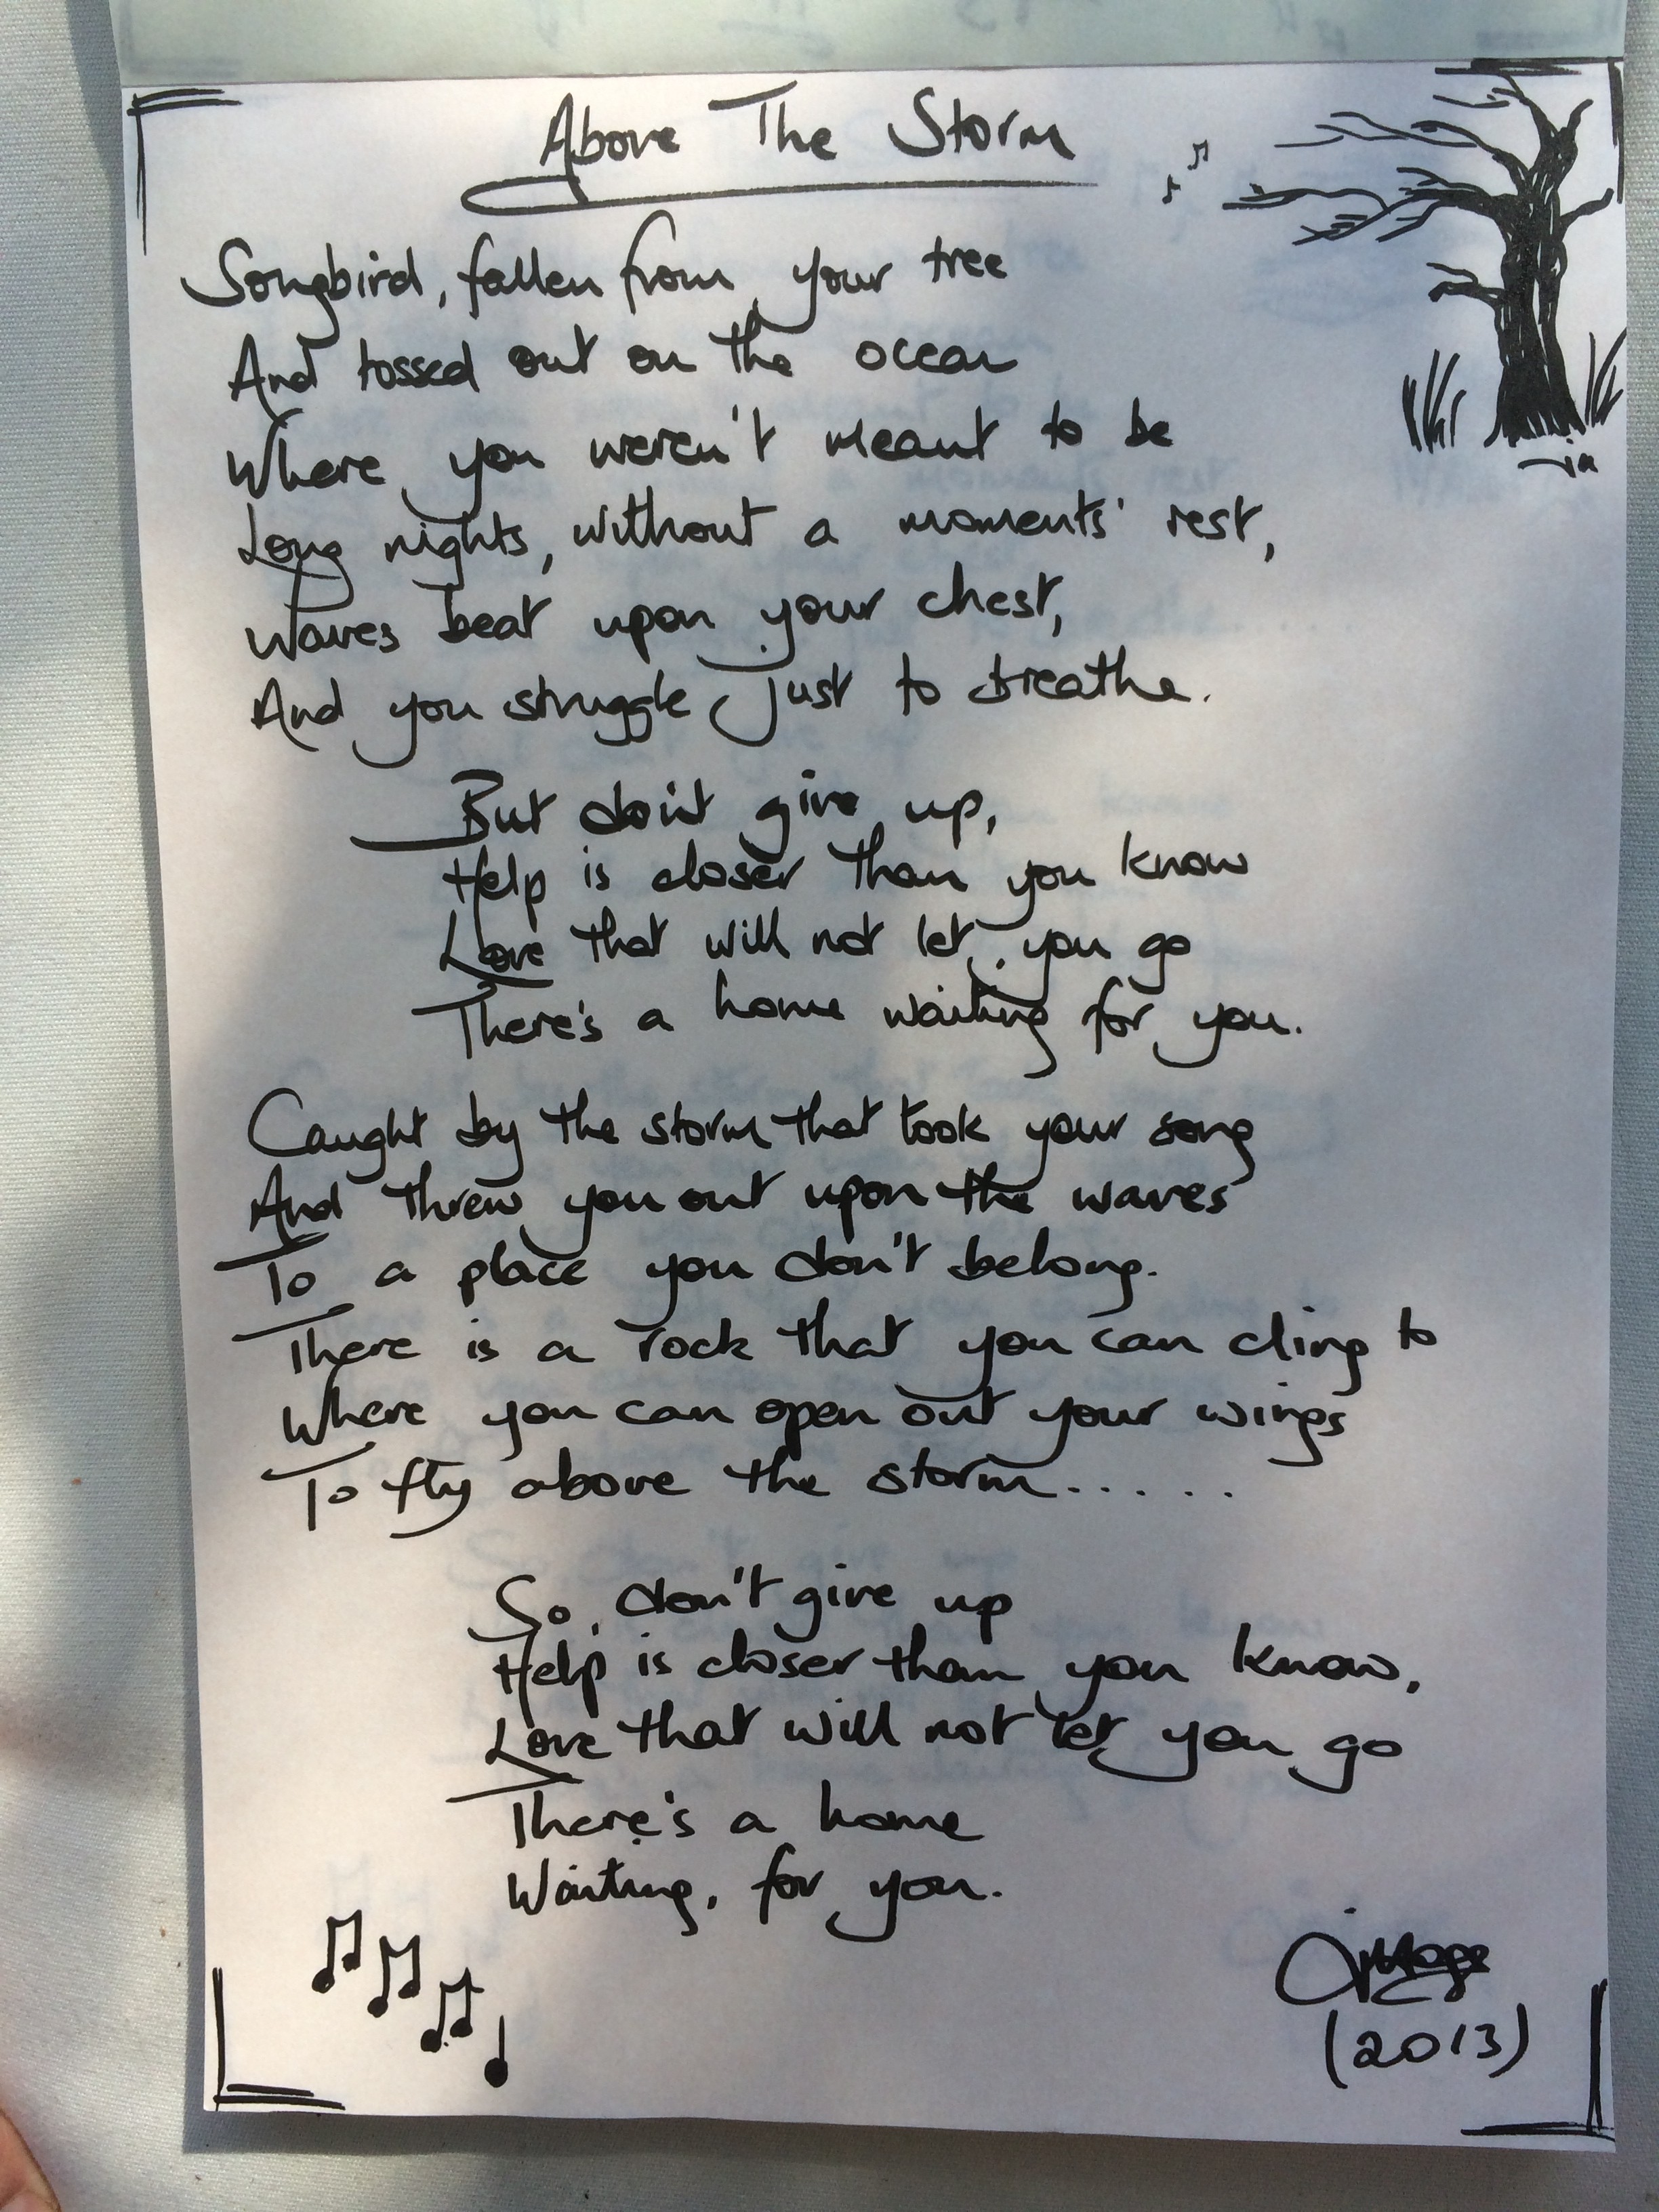 Above The Storm
Songbird, fallen from your tree
And tossed out on the ocean
Where you weren't meant to be
Long nights, without a moments' rest,
Waves beat upon your chest,
And you struggle just to breathe.
But don't give up,
Help is closer than you know
Love that will not let you go
There's a home waiting for you.
Caught by the storm that took your song
And threw you out upon the waves
To a place you don't belong.
There is a rock that you can cling to
Where you can open out your wings
To fly above the storm......
So, don't give up
Help is closer than you know,
Love that will not let you go
There's a home
Waiting, for you.
(2013)